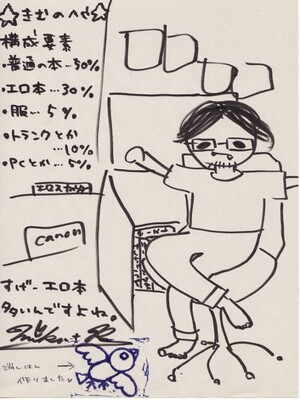 ☆きむのへや☆
構成要素
・普通の本…50%
・エロ本…30%
・服…5%
・トランクとか
…10%
・PCとか…5%
canon
すげーエロ本
多いんですよね。
消しはん
作りました